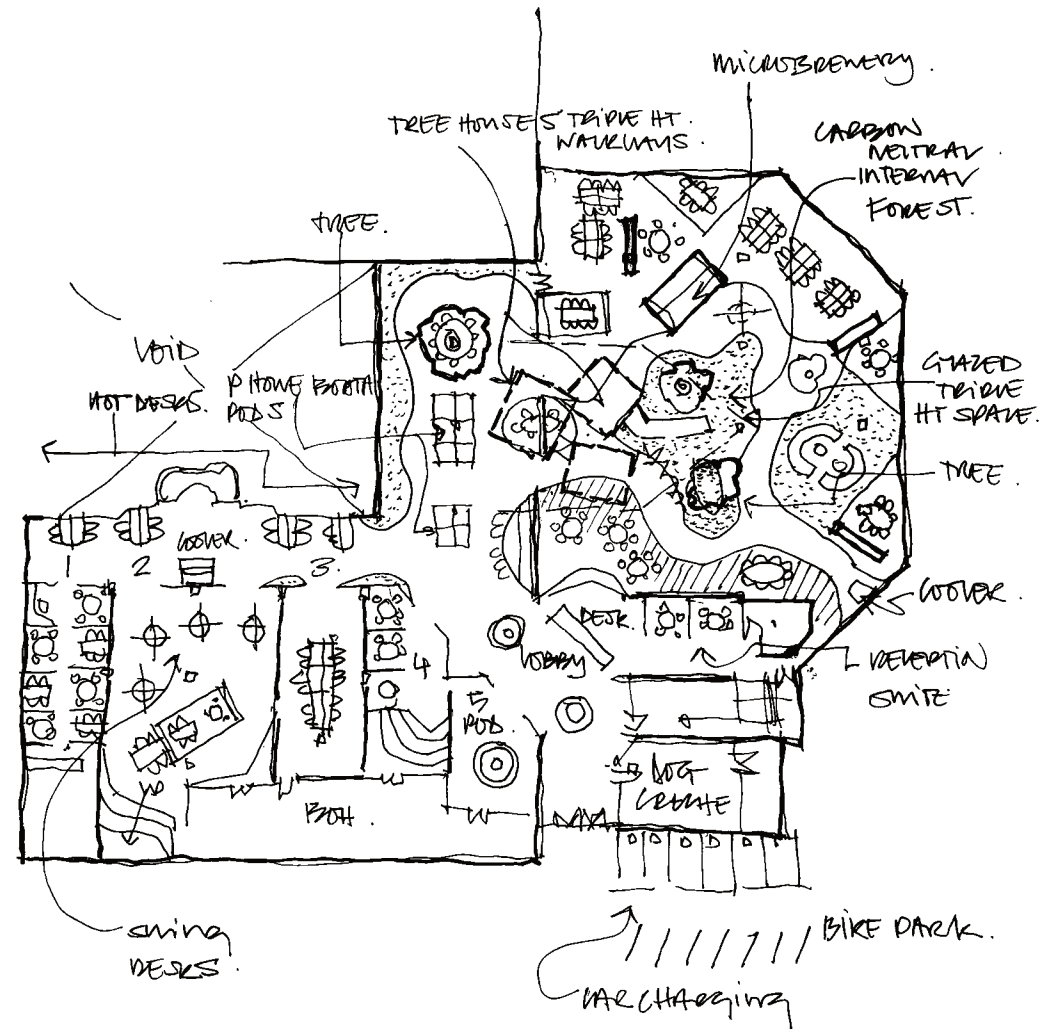 MICROBREWERY.
TREE HOUSES TRIPLE HT.
WALKWAYS.
CARBON
NEUTRAL
INTERNAL
FOREST.
TREE.
VOID
HOT DESKS.
PHONE BOOTH
PODS
GLAZED
TRIPLE
HT SPACE.
TREE
COOLER.
1
2
3.
COOLER.
DESK.
LOBBY
4
5
POD.
SUITE
DOG
CRECHE
BOH.
SWING
DESKS.
BIKE PARK.
CAR CHARGING